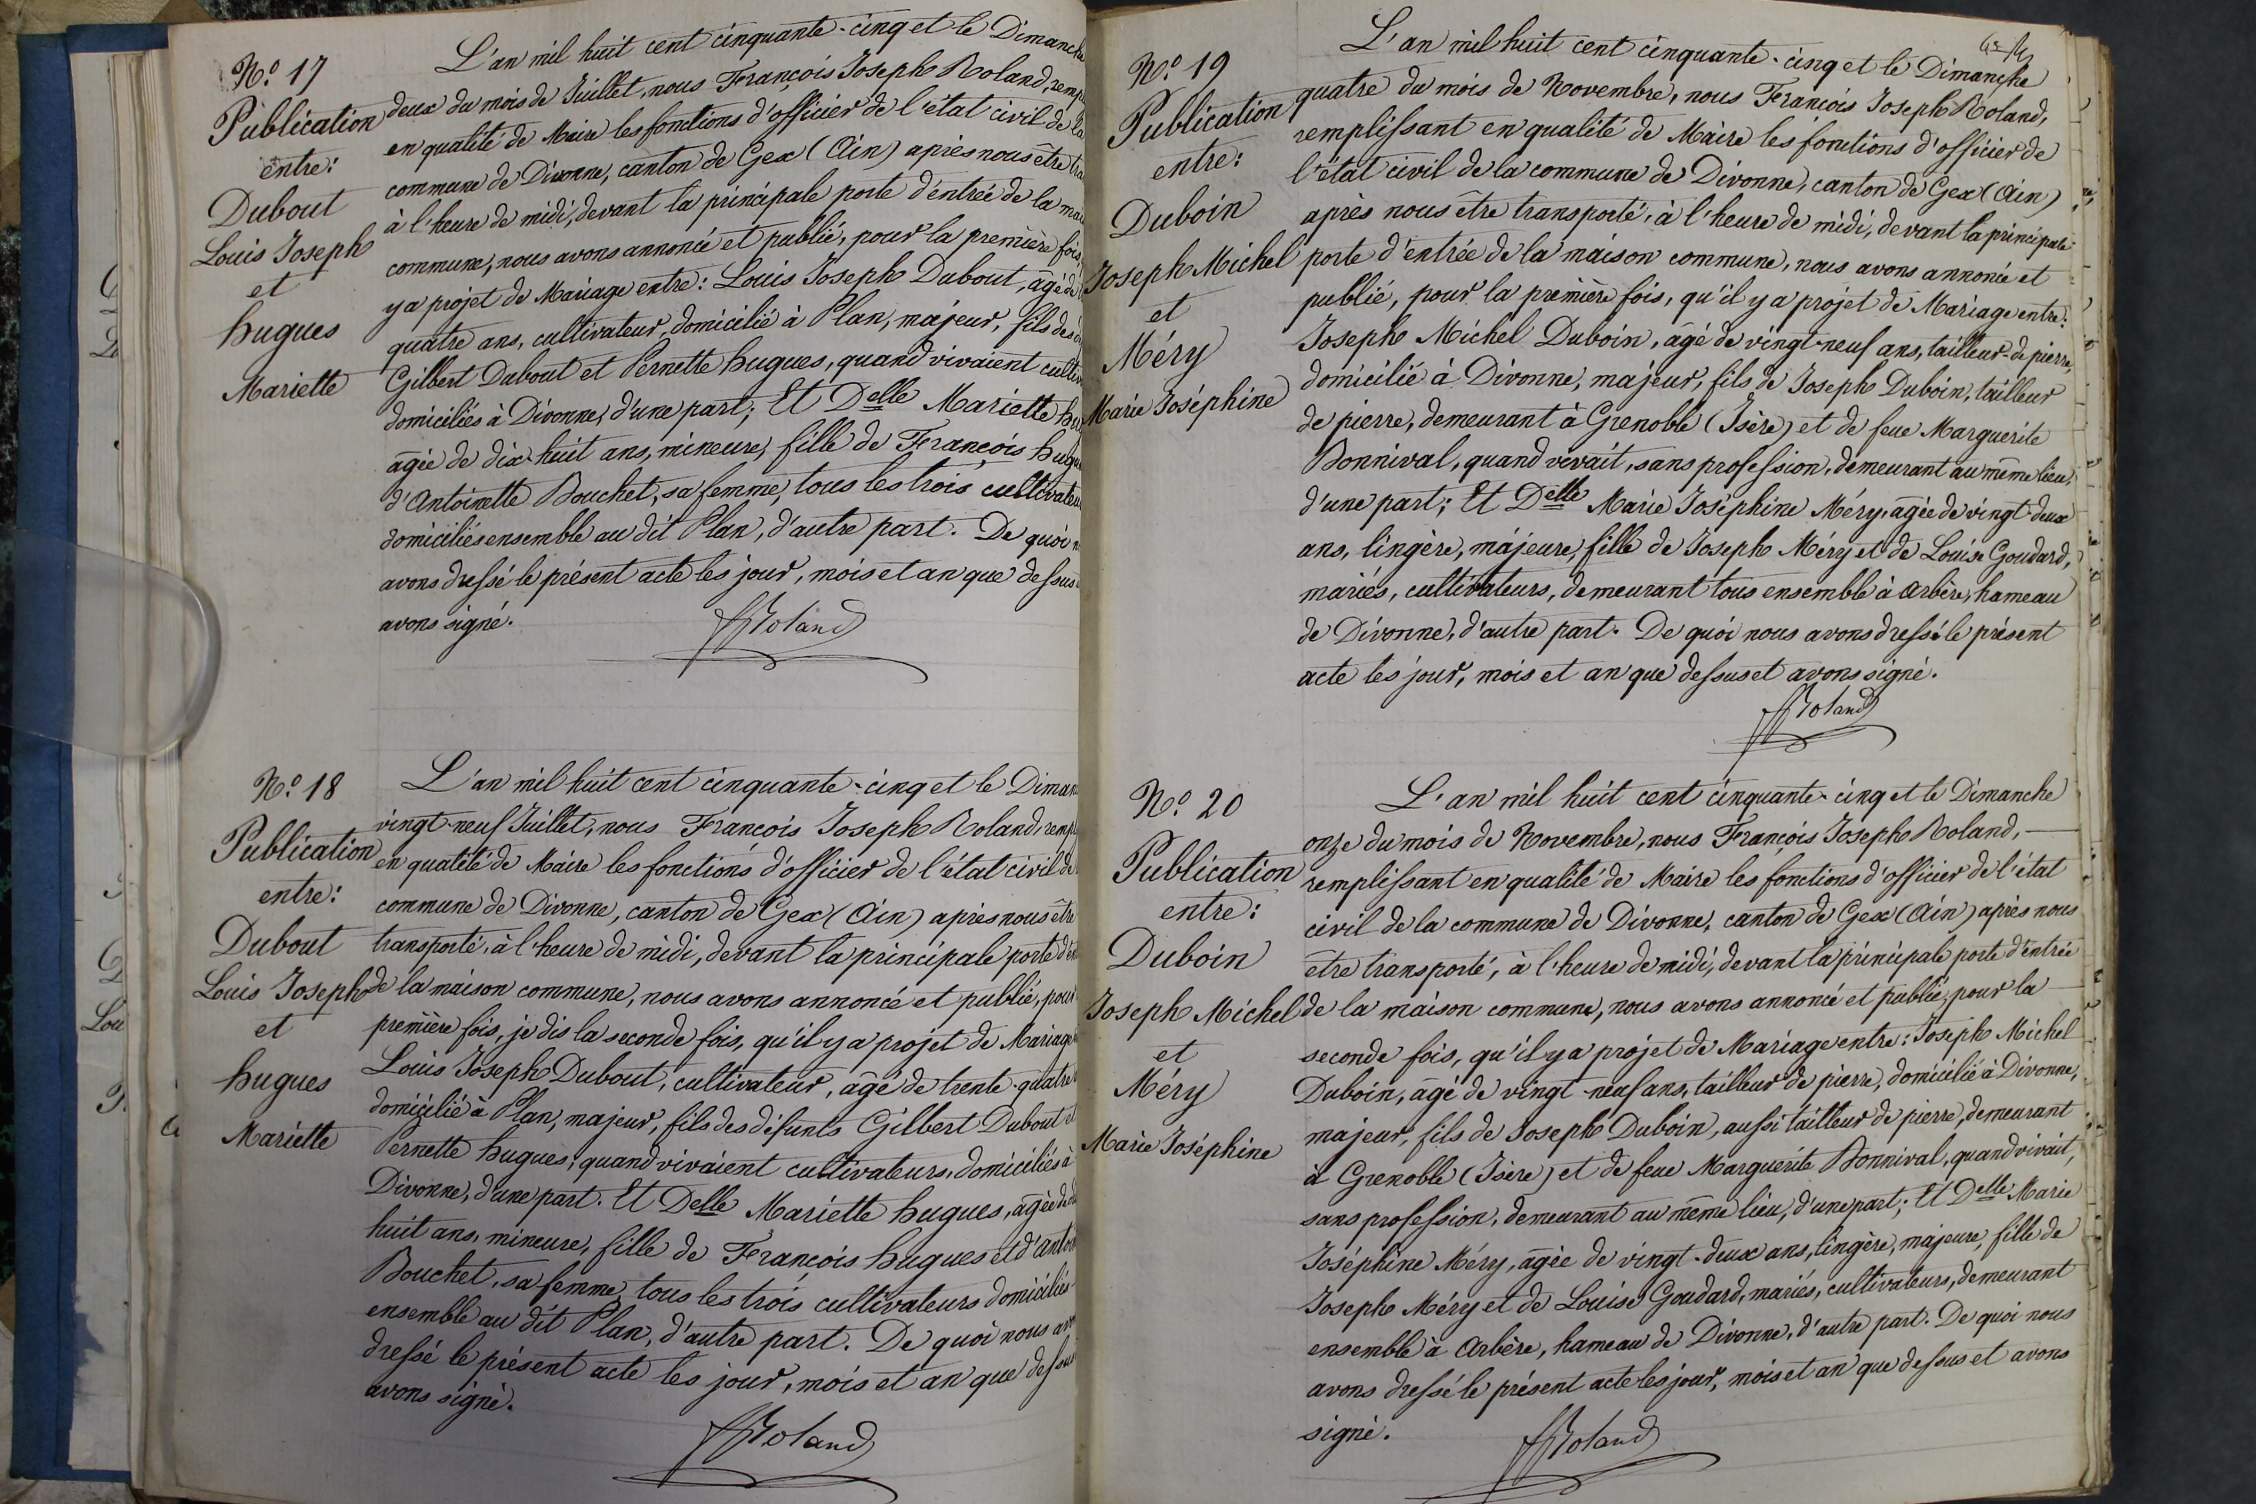 N.º 17
Publication
entre:
Dubout
Louis Joseph
et
hugues
Mariette
L'an mil huit cent cinquante-cinq et le Dimanche
deux du mois de Juillet, nous François Joseph Roland, remp
en qualité de Maire les fonctions d'officier de l'état civil de la
commune de Divonne, canton de Gex (Ain) après nous être tra
à l'heure de midi, devant la principale porte d'entrée de la mai
commune, nous avons annoncé et publié, pour la première fois,
y a projet de Mariage entre: Louis Joseph Dubout, âgé de
quatre ans, cultivateur, domicilié à Plan, majeur, fils des
Gilbert Dubout et Pernette hugues, quand vivaient cultiv
domiciliés à Divonne, d'une part; Et Delle Mariette hu
agée de dix-huit ans, mineure, fille de François hugu
d'Antoinette Bouchet, sa femme, tous les trois cultivateu
domiciliés ensemble au dit Plan, d'autre part. De quoi n
avons dressé le présent acte les jour, mois et an que dessus
avons signé.
Roland
N.º 18
Publication
entre:
Dubout
Louis Joseph
et
hugues
Mariette
L'an mil huit cent cinquante-cinq et le Diman
vingt-neuf Juillet, nous François Joseph Roland, rempl
en qualité de Maire les fonctions d'officier de l'état civil de
commune de Divonne, canton de Gex (Ain) après nous être
transporté, à l'heure de midi, devant la principale porte d'en
de la maison commune, nous avons annoncé et publié, pour
première fois, je dis la seconde fois, qu'il y a projet de Mariage
Louis Joseph Dubout, cultivateur, âgé de trente-quatre
domicilié à Plan, majeur, fils des défunts Gilbert Dubout et
Pernette hugues, quand vivaient cultivateurs, domiciliés à
Divonne, d'une part. Et Delle Mariette hugues, agée de
huit ans, mineure, fille de François hugues et d'Antoi
Bouchet, sa femme, tous les trois cultivateurs domiciliés
ensemble au dit Plan, d'autre part. De quoi nous av
dressé le présent acte les jour, mois et an que dessus
avons signé.
Roland
N.º 19
Publication
entre:
Duboin
Joseph Michel
et
Méry
Marie Joséphine
L'an mil huit cent cinquante-cinq et le Dimanche
quatre du mois de Novembre, nous François Joseph Roland,
remplissant en qualité de Maire les fonctions d'officier de
l'état civil de la commune de Divonne, canton de Gex (Ain)
après nous être transporté, à l'heure de midi, devant la principale
porte d'entrée de la maison commune, nous avons annoncé et
publié, pour la première fois, qu'il y a projet de Mariage entre:
Joseph Michel Duboin, âgé de vingt-neuf ans, tailleur de pierre,
domicilié à Divonne, majeur, fils de Joseph Duboin, tailleur
de pierre, demeurant à Grenoble (Isère) et de feue Marguerite
Bonnival, quand vivait, sans profession, demeurant au même lieu,
d'une part; Et Delle Marie Joséphine Méry, agée de vingt-deux
ans, lingère, majeure, fille de Joseph Méry et de Louise Goudard,
mariés, cultivateurs, demeurant tous ensemble à Arbère, hameau
de Divonne, d'autre part. De quoi nous avons dressé le présent
acte les jour, mois et an que dessus et avons signé.
Roland
N.º 20
Publication
entre:
Duboin
Joseph Michel
et
Méry
Marie Joséphine
L'an mil huit cent cinquante-cinq et le Dimanche
onze du mois de Novembre, nous François Joseph Roland,
remplissant en qualité de Maire les fonctions d'officier de l'état
civil de la commune de Divonne, canton de Gex (Ain) après nous
être transporté, à l'heure de midi, devant la principale porte d'entrée
de la maison commune, nous avons annoncé et publié, pour la
seconde fois, qu'il y a projet de Mariage entre: Joseph Michel
Duboin, âgé de vingt-neuf ans, tailleur de pierre, domicilié à Divonne,
majeur, fils de Joseph Duboin, aussi tailleur de pierre, demeurant
à Grenoble (Isère) et de feue Marguerite Bonnival, quand vivait,
sans profession, demeurant au même lieu, d'une part; Et Delle Marie
Joséphine Méry, agée de vingt-deux ans, lingère, majeure, fille de
Joseph Méry et de Louise Goudard, mariés, cultivateurs, demeurant
ensemble à Arbère, hameau de Divonne, d'autre part. De quoi nous
avons dressé le présent acte les jour, mois et an que dessus et avons
signé.
Roland